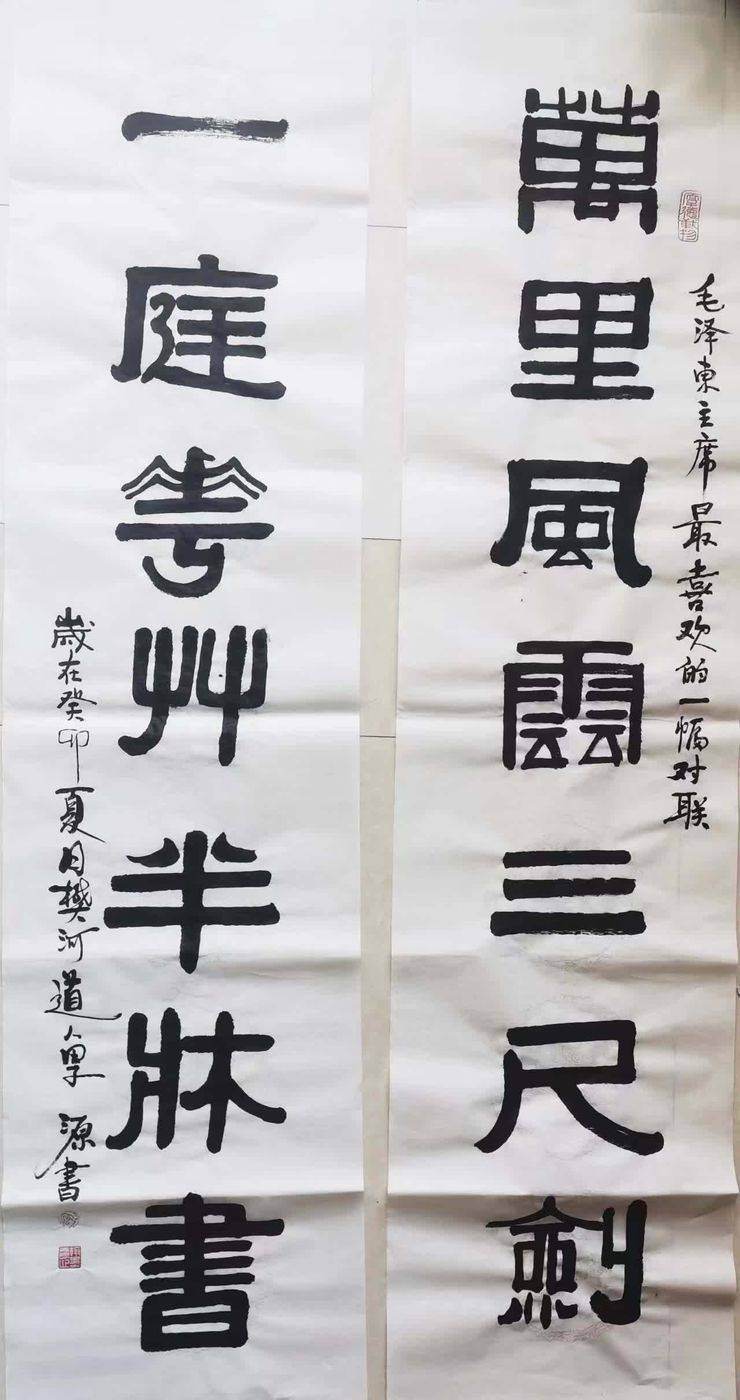 毛泽東主席最喜欢的一幅对联
萬里風雲三尺劍
一庭華艸半牀書
歲在癸卯夏月樊河道人源書